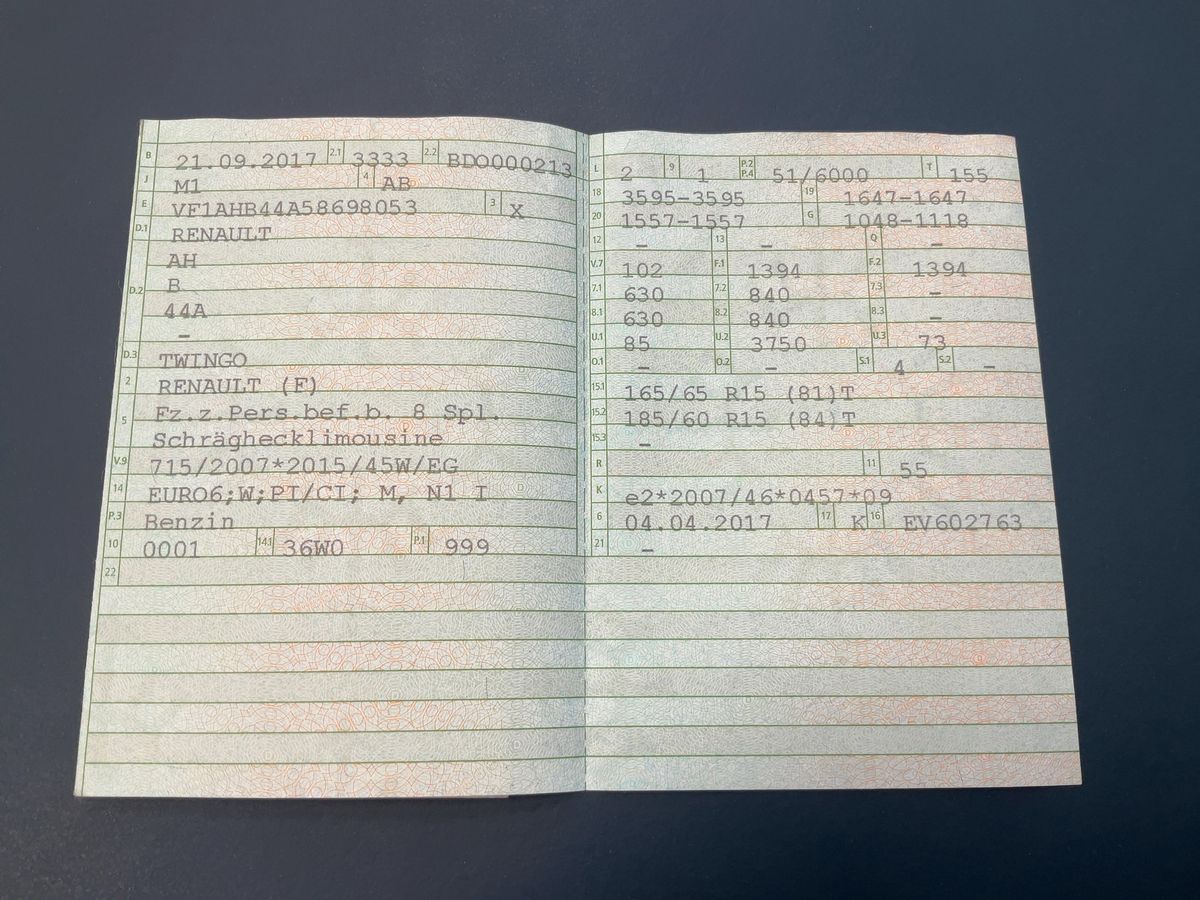 B 21.09.2017 2.1 3333 2.2 BDO000213
J M1 4 AB
E VF1AHB44A58698053 3 X
D.1 RENAULT
D.2 AH
B
44A
–
D.3 TWINGO
2 RENAULT (F)
5 Fz.z.Pers.bef.b. 8 Spl.
Schräghecklimousine
V.9 715/2007*2015/45W/EG
14 EURO6;W;PI/CI; M, N1 I
P.3 Benzin
10 0001 14.1 36W0 P.1 999
22
L 2 9 1 P.2 P.4 51/6000 T 155
18 3595-3595 19 1647-1647
20 1557-1557 G 1048-1118
12 – 13 – Q –
V.7 102 F.1 1394 F.2 1394
7.1 630 7.2 840 7.3 –
8.1 630 8.2 840 8.3 –
U.1 85 U.2 3750 U.3 73
O.1 – O.2 – S.1 4 S.2 –
15.1 165/65 R15 (81)T
15.2 185/60 R15 (84)T
15.3 –
R 11 55
K e2*2007/46*0457*09
6 04.04.2017 17 K 16 EV602763
21 –